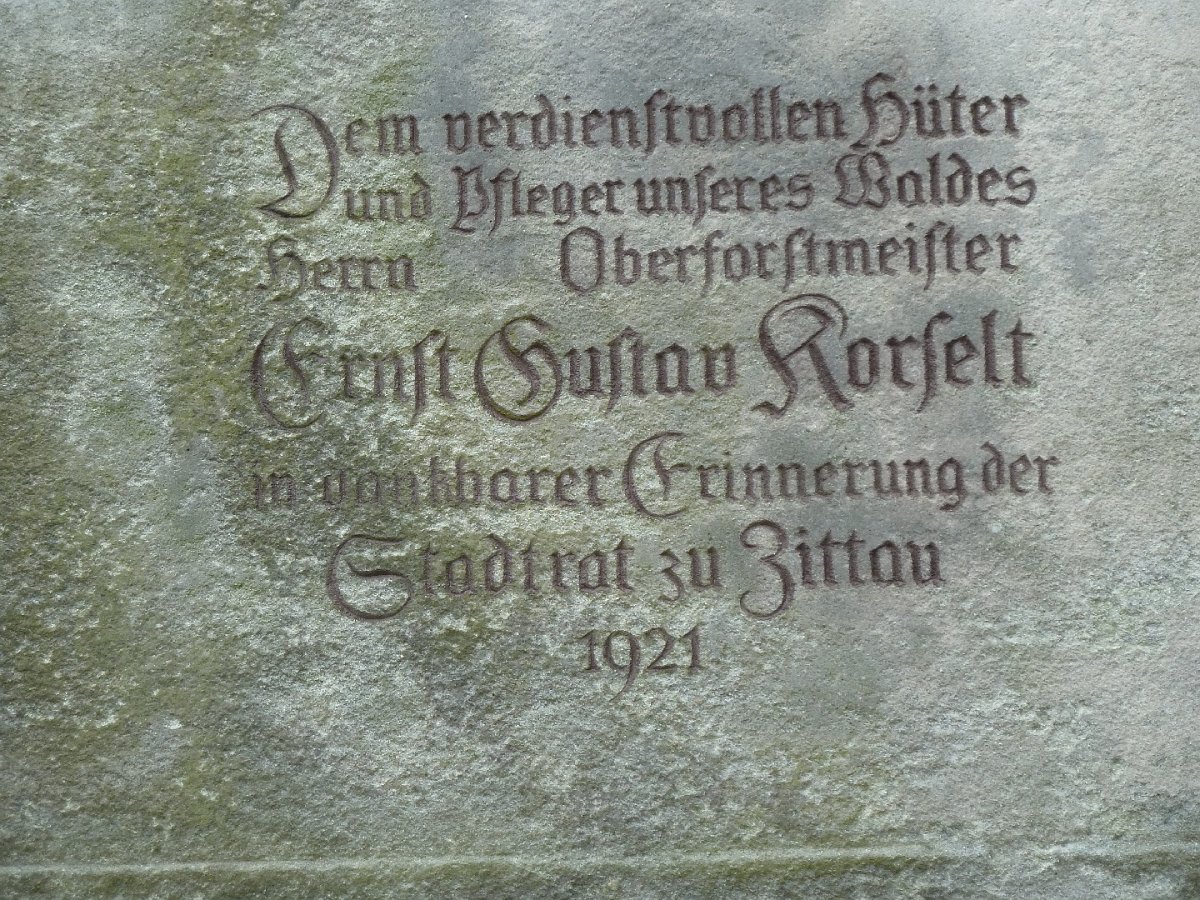 Dem verdienstvollen Hüter
und Pfleger unseres Waldes
Herrn Oberforstmeister
Ernst Gustav Korselt
in dankbarer Erinnerung der
Stadtrat zu Zittau
1921